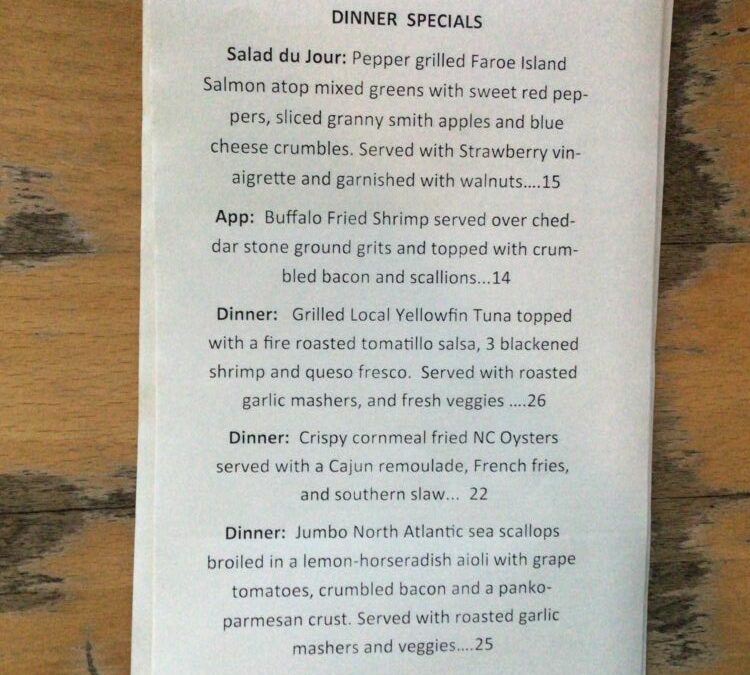 DINNER SPECIALS
Salad du Jour: Pepper grilled Faroe Island
Salmon atop mixed greens with sweet red pep-
pers, sliced granny smith apples and blue
cheese crumbles. Served with Strawberry vin-
aigrette and garnished with walnuts....15
App: Buffalo Fried Shrimp served over ched-
dar stone ground grits and topped with crum-
bled bacon and scallions...14
Dinner: Grilled Local Yellowfin Tuna topped
with a fire roasted tomatillo salsa, 3 blackened
shrimp and queso fresco. Served with roasted
garlic mashers, and fresh veggies ....26
Dinner: Crispy cornmeal fried NC Oysters
served with a Cajun remoulade, French fries,
and southern slaw... 22
Dinner: Jumbo North Atlantic sea scallops
broiled in a lemon-horseradish aioli with grape
tomatoes, crumbled bacon and a panko-
parmesan crust. Served with roasted garlic
mashers and veggies....25